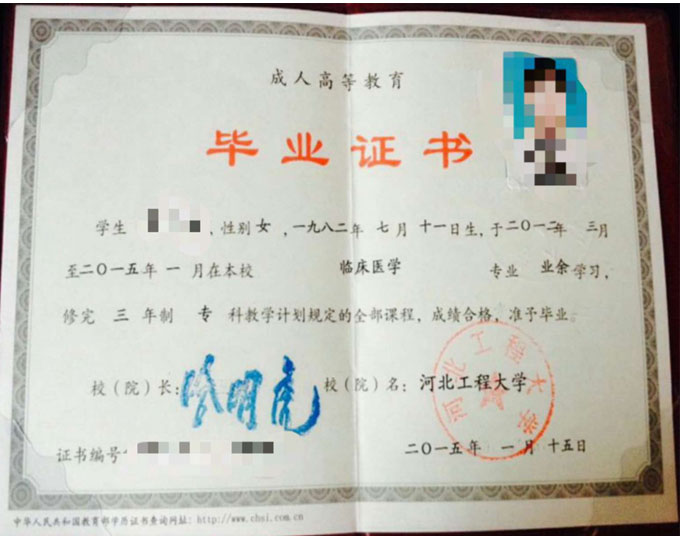 成人高等教育
毕业证书
学生 ，性别女，一九八二年 七月 十一日生，于二〇一二年 三月
至二〇一五年 一 月在本校 临床医学 专业 业余学习，
修完 三 年制 专 科教学计划规定的全部课程，成绩合格，准予毕业。
校（院）长： 校（院）名：河北工程大学
河北工程大学
证书编号 二〇一五年 一 月 十五日
中华人民共和国教育部学历证书查询网址：http://www.chsi.com.cn